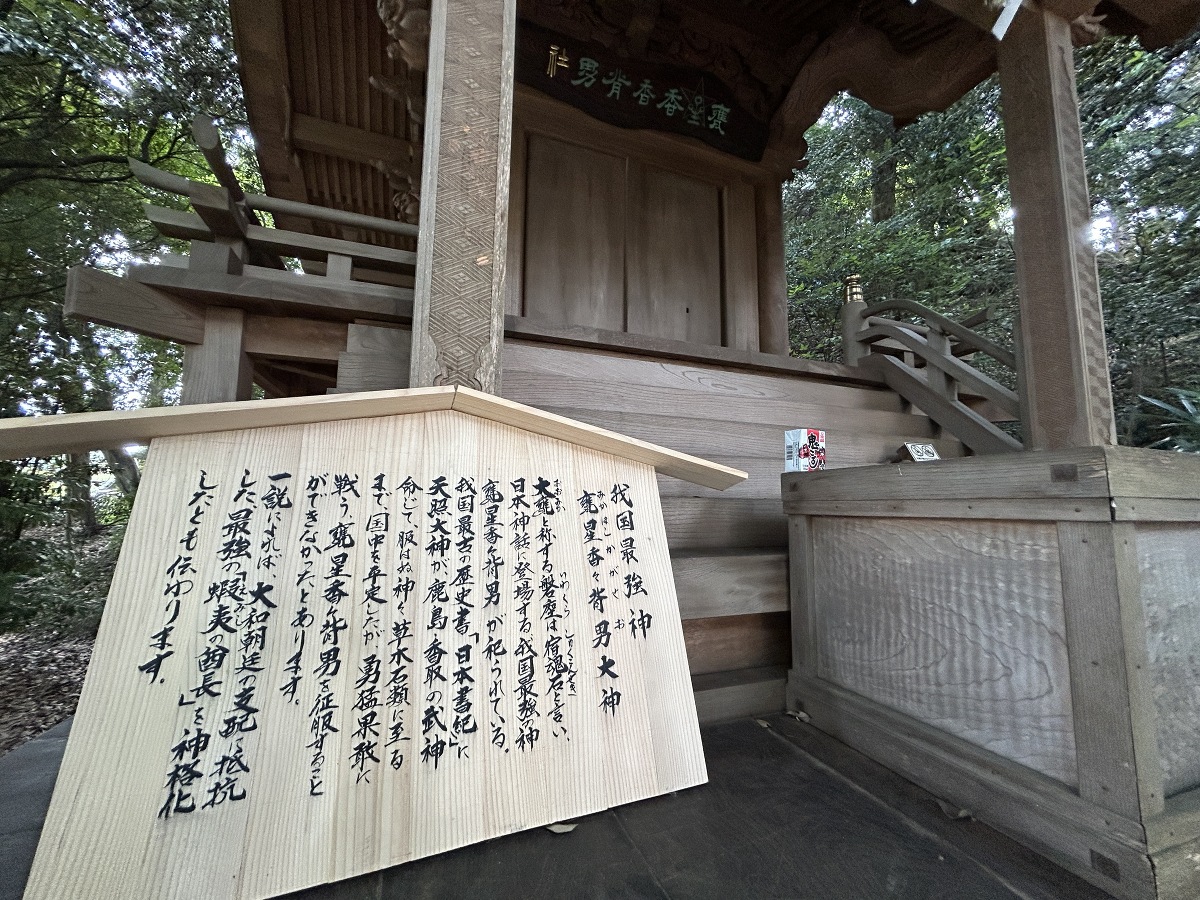 甕星香々背男社
我国最強神
甕星香々背男大神
みかほしかがせお
大甕と称する磐座は宿魂石と言い、
おおみか
いわくら
しゅくこんせき
日本神話に登場する我国最強の神
甕星香々背男が祀られている。
我国最古の歴史書「日本書紀」に
天照大神が鹿島・香取の武神
命じて、服はぬ神々草木石類に至る
まで、国中を平定したが、勇猛果敢に
戦う、甕星香々背男を征服すること
ができなかったとあります。
一説によれば、大和朝廷の支配に抵抗
した最強の「蝦夷の酋長」を神格化
えみし
したとも伝わります。
鬼ころし